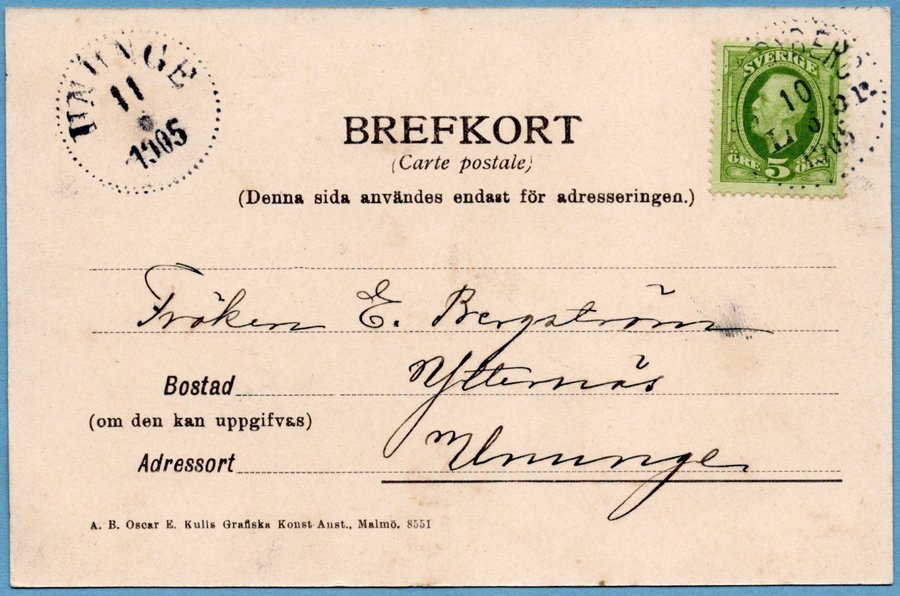 UNUNGE
11
1905
SVERIGE
10
1905
ÖRE 5
BREFKORT
(Carte postale)
(Denna sida användes endast för adresseringen.)
Fröken E. Bergström
Ytternäs
Bostad
(om den kan uppgifvas)
Ununge
Adressort
A. B. Oscar E. Kulls Grafiska Konst-Anst., Malmö. 8551